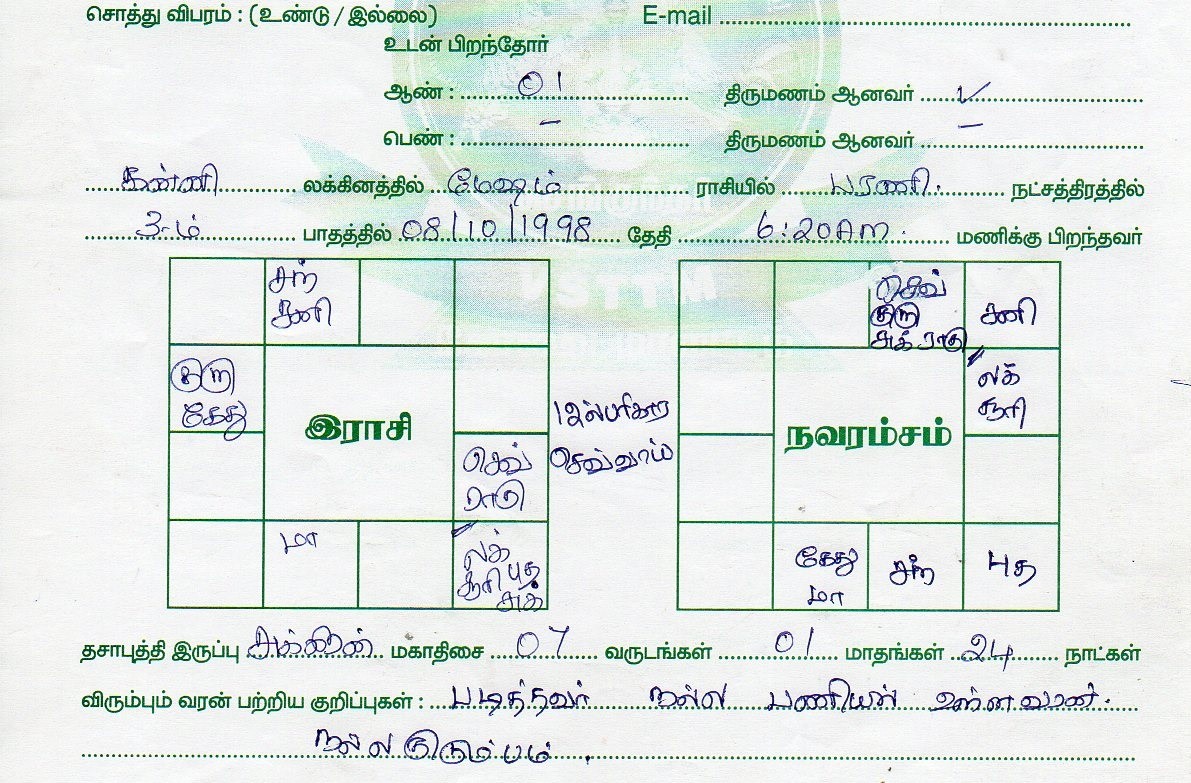 சொத்து விபரம் : (உண்டு / இல்லை) E-mail
உடன் பிறந்தோர்
ஆண் : 01 திருமணம் ஆனவர் ✓
பெண் : – திருமணம் ஆனவர் –
கன்னி லக்கினத்தில் மேஷம் ராசியில் பரணி. நட்சத்திரத்தில்
3-ம் பாதத்தில் 08/10/1998 தேதி 6:20Am. மணிக்கு பிறந்தவர்
சந்
சனி
குரு
கேது
இராசி
செவ்
ராகு
மா
லக்
சூரி புத
சுக்
செவ்வாய்
செவ்
குரு
சுக் ராகு
சனி
லக்
சூரி
நவரம்சம்
கேது
மா
சந்
புத
தசாபுத்தி இருப்பு சுக்கிரன் மகாதிசை 07 வருடங்கள் 01 மாதங்கள் 24 நாட்கள்
விரும்பும் வரன் பற்றிய குறிப்புகள் : படித்தவர் நல்ல பணியில் உள்ளவர்.
நல்ல குடும்பம்.